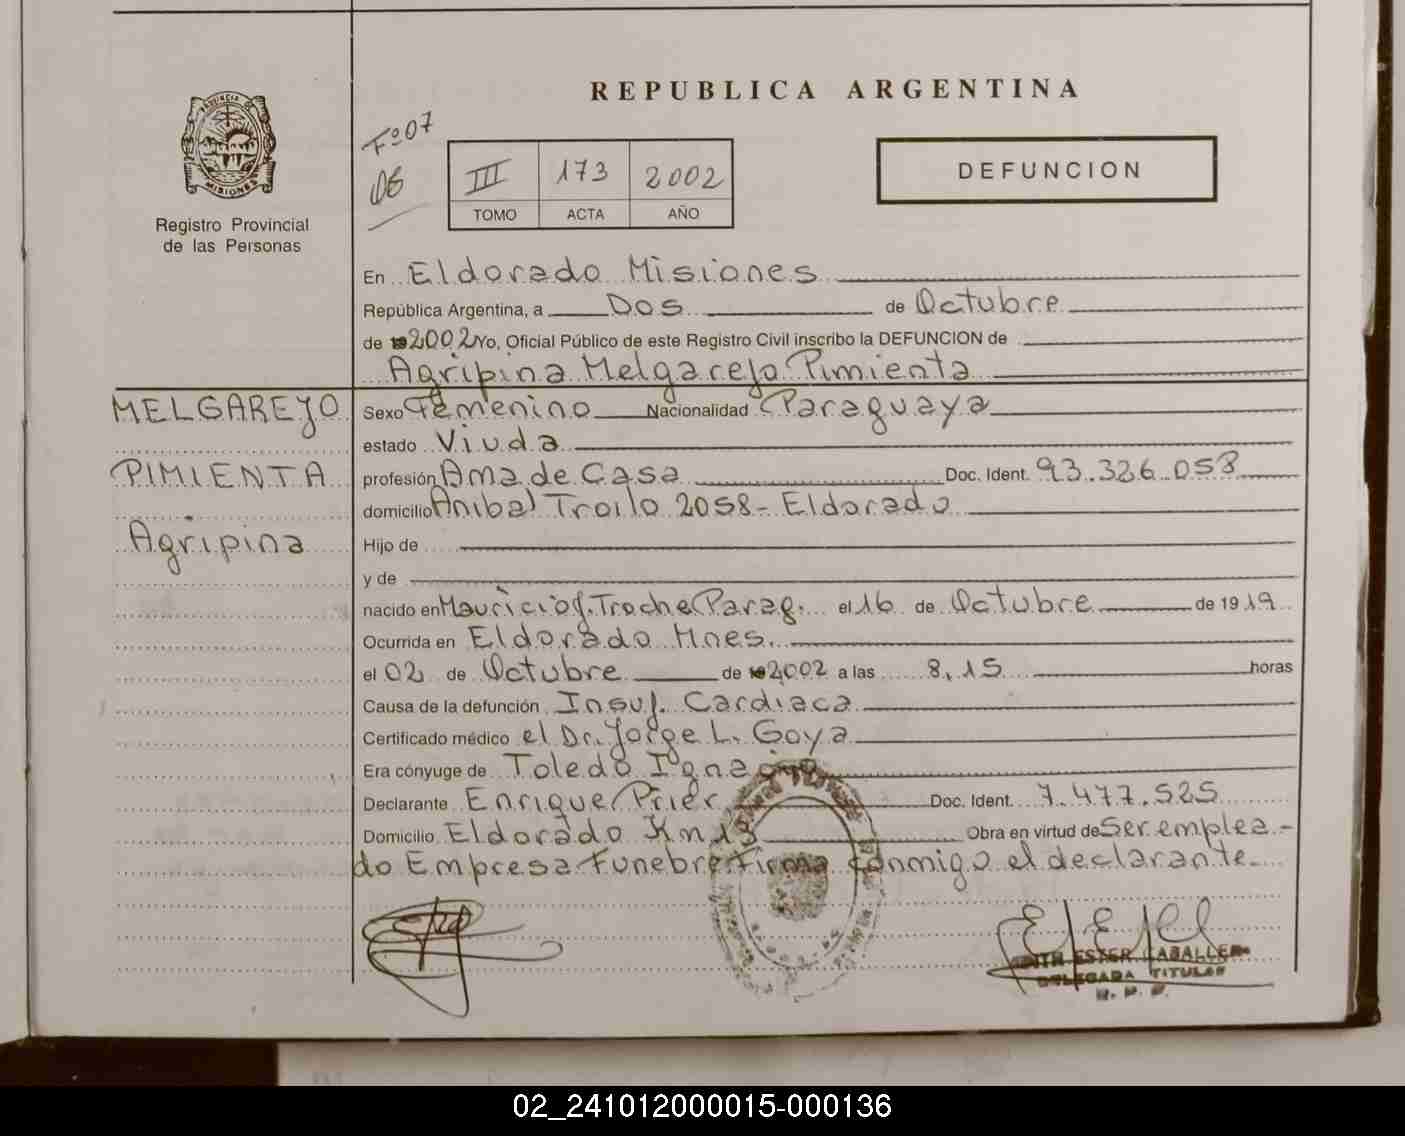 REPUBLICA ARGENTINA
PROVINCIA DE
MISIONES
Registro Provincial
de las Personas
Fº07
06
III 173 2002
TOMO ACTA AÑO
DEFUNCION
En Eldorado Misiones
República Argentina, a Dos de Octubre
de 192002 Yo, Oficial Público de este Registro Civil inscribo la DEFUNCION de
Agripina Melgarejo Pimienta
MELGAREJO
PIMIENTA
Agripina
Sexo Femenino Nacionalidad Paraguaya
estado Viuda
profesión Ama de Casa Doc. Ident. 93.326.058
domicilio Anibal Troilo 2058- Eldorado
Hijo de
y de
nacido en Mauricio J. Troche Parag. el 16 de Octubre de 1919
Ocurrida en Eldorado Mnes.
el 02 de Octubre de 192002 a las 8,15 horas
Causa de la defunción Insuf. Cardiaca
Certificado médico el Dr. Jorge L. Goya
Era cónyuge de Toledo Ignacio
Declarante Enrique Prier Doc. Ident. 7.477.525
Domicilio Eldorado Km Obra en virtud de Ser emplea-
do Empresa Funebre Firma conmigo el declarante
ESTER CABALLER
DELEGADA TITULAR
02_241012000015-000136